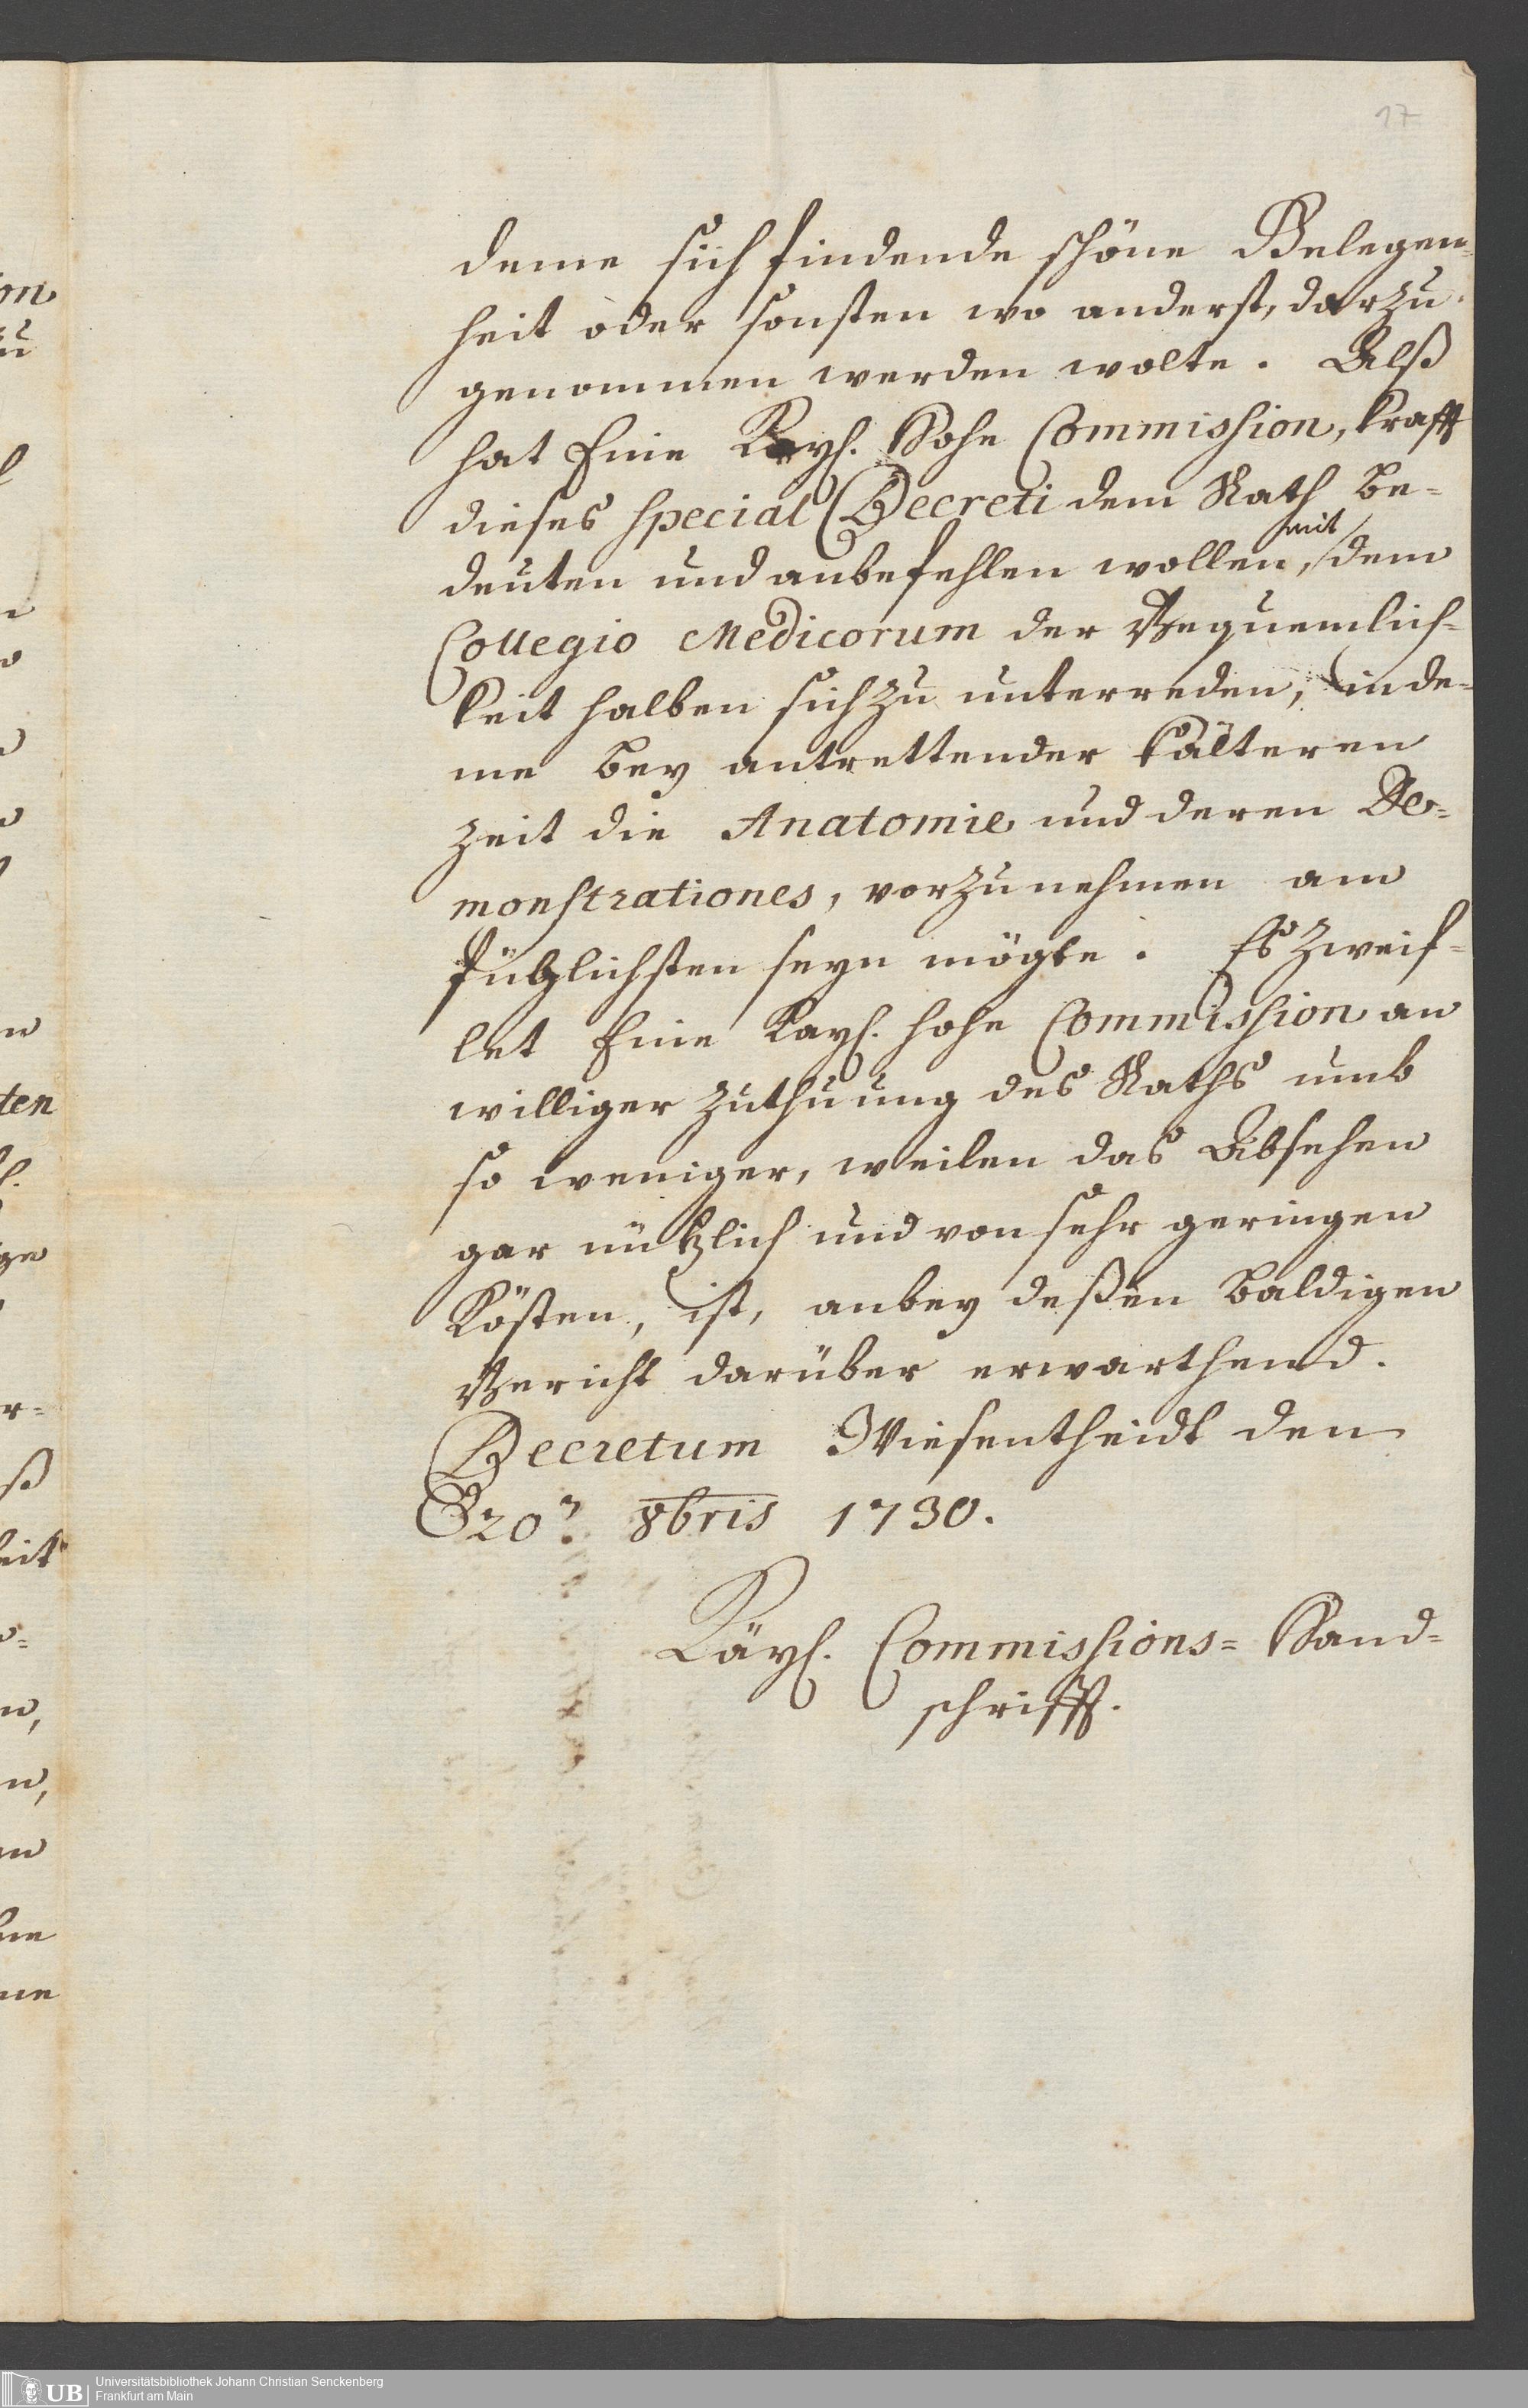 17
deme sich findende schöne Gelegen¬
heit oder sonsten wo anderst, darzu
genommen werden wolte. Alß
hat Eine Kayß. Hohe Commission, krafft
dieses special Decreti dem Rath be=
deuten und anbefehlen wollen, mit dem
Collegio Medicorum der Bequemlich=
keit halben sich zu unterreden, inde=
me bey antrettender kälteren
Zeit die Anatomie und deren De=
monstrationes, vorzunehmen am
füglichsten seyn mögte. Es zweif=
let Eine Kayß. hohe Commission an
williger zuthuung des Raths umb
so weniger, weilen das Absehen
gar nützlich und von sehr geringen
Kösten, ist, anbey deßen baldigen
Bericht darüber erwarthend.
Decretum Wiesentheidt den
20? 8bris 1730.
Käyß. Commissions= Hand=
schrifft.
on
zu
ten
ge
r=
ß
eit
n,
n,
ne
UB
Universitätsbibliothek Johann Christian Senckenberg
Frankfurt am Main